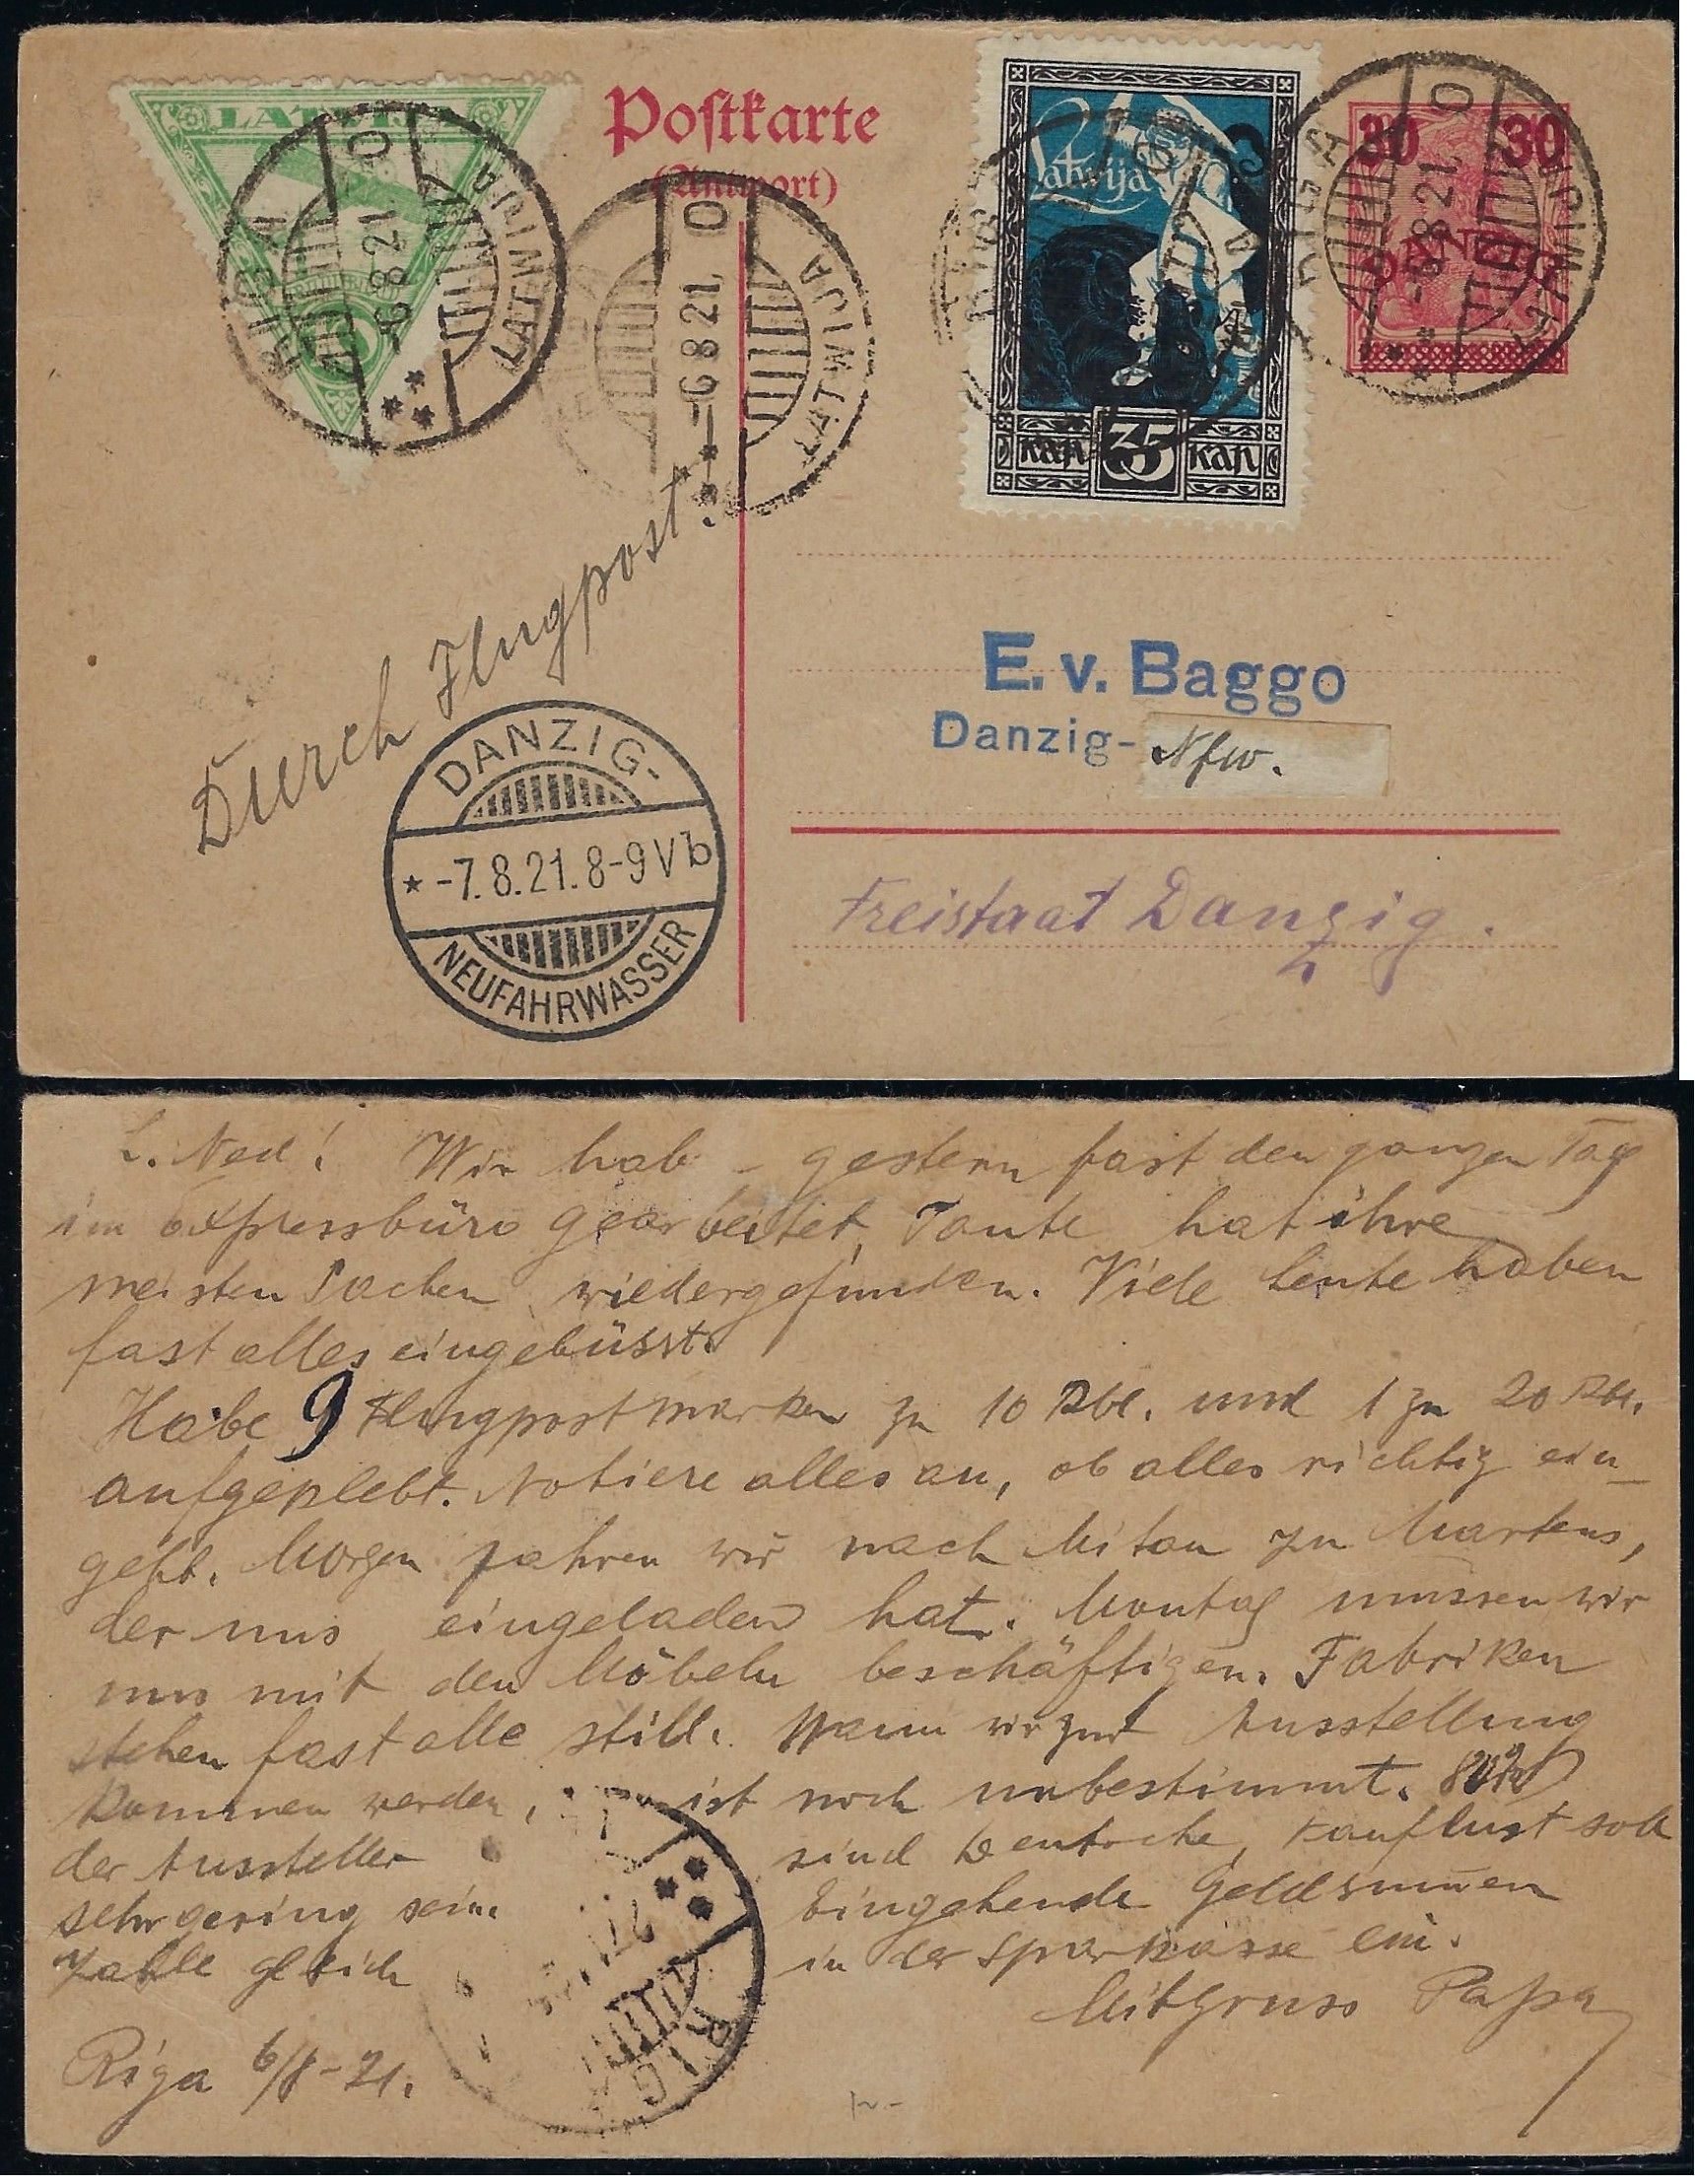 Postkarte
(Antwort)
LATVIJA
10
RIGA
LATWIJA
-6 8 21. O
-6 8 21. O
LATWIJA
Latvija
KAP 35 KAP
30 30
DANZIG
RIGA
-6 8 21. O
LATWIJA
Durch Flugpost.
E. v. Baggo
Danzig- Nfw.
DANZIG-
* -7.8.21.8-9Vb
NEUFAHRWASSER
Freistaat Danzig.
L. Ned! Wir hab - gestern fast den ganzen Tag
im Expressbüro gearbeitet, Tante hat ihre
meisten Sachen wiedergefunden. Viele Leute haben
fast alles eingebüsst.
Habe 9 Flugpostmarken zu 10 Rbl. und 1 zu 20 Rbl.
aufgeklebt. Notiere alles an, ob alles richtig ein-
geht. Morgen fahren wir nach Mitau zu Martens,
der uns eingeladen hat. Montag müssen wir
uns mit den Möbeln beschäftigen. Fabriken
stehen fast alle still. Wann wir zur Ausstellung
kommen werden, ist noch unbestimmt. 80%
der Aussteller sind Deutsche, Kauflust soll
sehr gering sein. Eingehende Geldsummen
zahle gleich in der Sparkasse ein.
Mitgruss Papa
Riga 6/8-21.
RIG